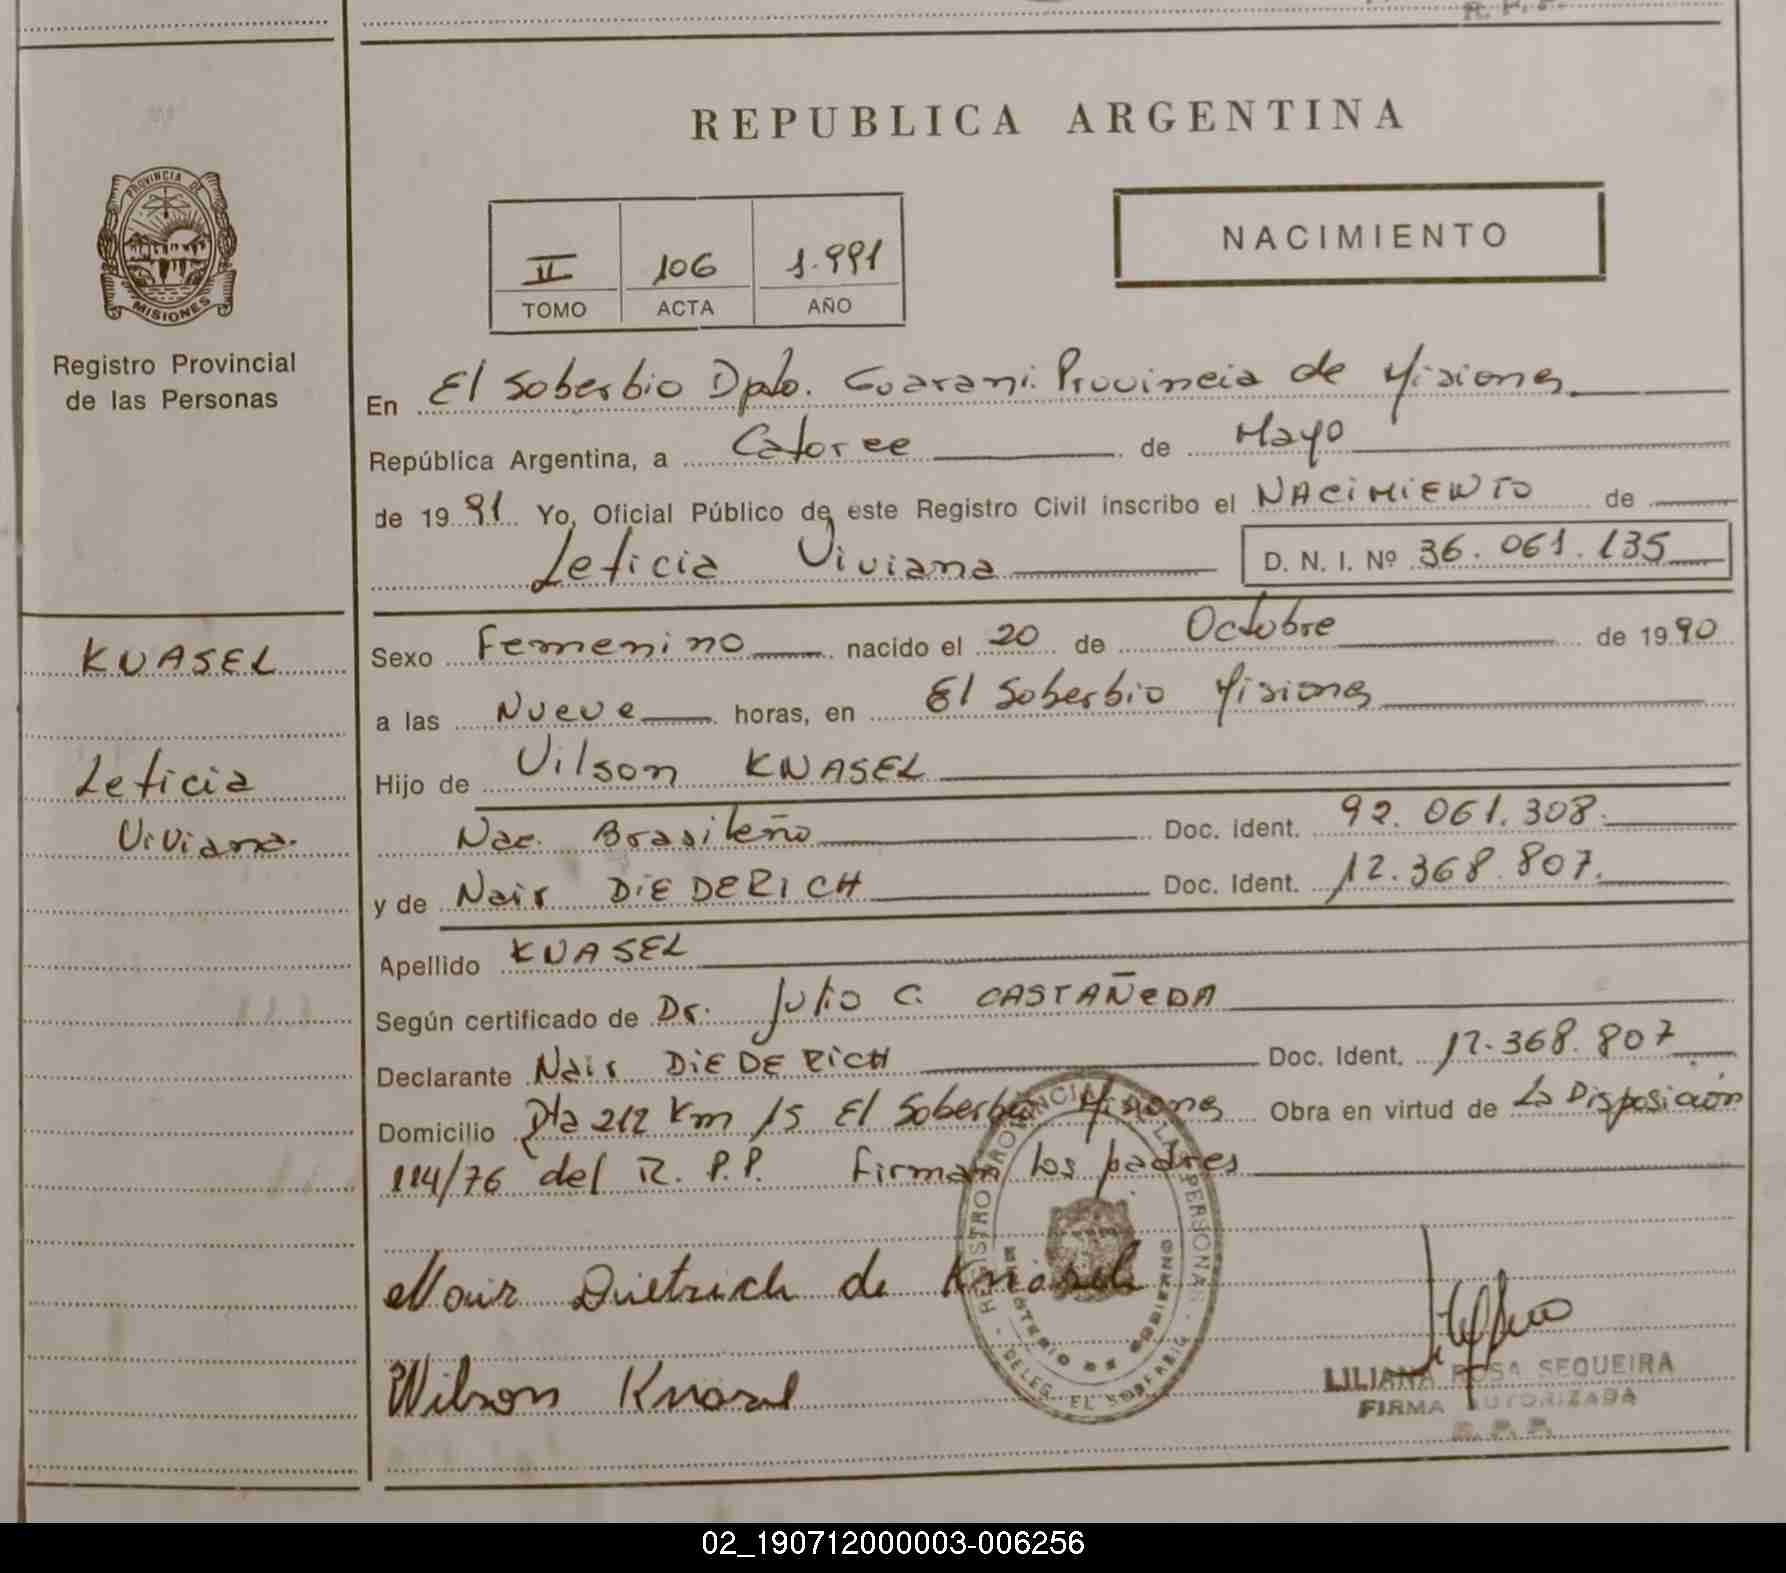 R. P. P.
REPUBLICA ARGENTINA
PROVINCIA DE
MISIONES
Registro Provincial
de las Personas
NACIMIENTO
II 106 1.991
TOMO ACTA AÑO
En El Soberbio Dpto. Guarani. Provincia de Misiones
República Argentina, a Catorce de Mayo
de 1991 Yo, Oficial Público de este Registro Civil inscribo el NACIMIENTO de
Leticia Viviana D. N. I. Nº 36.061.135
KNASEL
Leticia
Viviana.
Sexo Femenino nacido el 20 de Octubre de 1990
a las Nueve horas, en El Soberbio Misiones
Hijo de Vilson KNASEL
Nac. Brasileño Doc. Ident. 92.061.308.
y de Nair DiEDERICH Doc. Ident. 12.368.807.
Apellido KNASEL
Según certificado de Dr. Julio C. CASTAÑEDA
Declarante Nair DiEDERICH Doc. Ident. 12.368.807
Domicilio Pta 212 Km 15 El Soberbio Misiones Obra en virtud de La Disposición
114/76 del R. P.P. Firman los padres
Nair Dietrich de Knasel
Wilson Knasel
REGISTRO PROVINCIAL DE LAS PERSONAS
MINISTERIO DE GOBIERNO
DELEG. EL SOBERBIO
LILIANA ROSA SEQUEIRA
FIRMA AUTORIZADA
R. P. P.
02_190712000003-006256